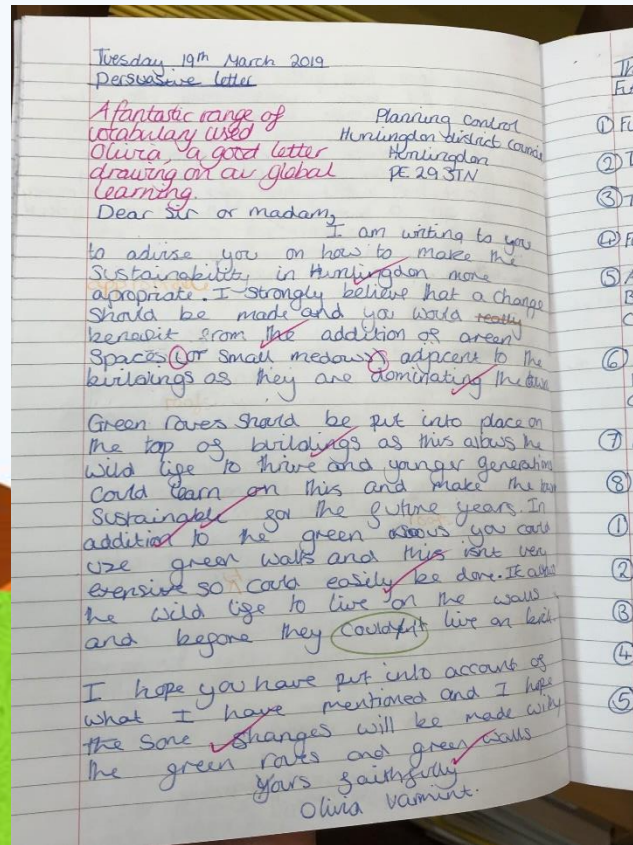 Tuesday 19th March 2019
Persuasive letter
A fantastic range of
votabulary used
Olivia, a good letter
drawing on our global
learning.
Planning control
Huntingdon district council
Huntingdon
PE 29 3TN
Dear Sir or madam,
I am writing to you
to advise you on how to make the
Sustainability in Huntingdon more
apropriate. I strongly believe that a change
should be made and you would really
benefit from the addition of green
Spaces (or small medows) adjacent to the
buildings as they are dominating the town
Green rooves should be put into place on
the top of buildings as this allows the
wild life to thrive and younger generations
could learn on this and make the town
Sustainable for the future years. In
addition to the green you could
use green walls and this isnt very
exensive so could easily be done. It allows
the wild life to live on the walls
and before they couldn't live on brick.
I hope you have put into account of
what I have mentioned and I hope
the some changes will be made with
the green rooves and green walls
Yours faithfully
Olivia varmint.
Th
Fu
① Fu
② T
③ T
④ F
⑤ A
B
C
⑥
⑦
⑧
①
②
③
④
⑤